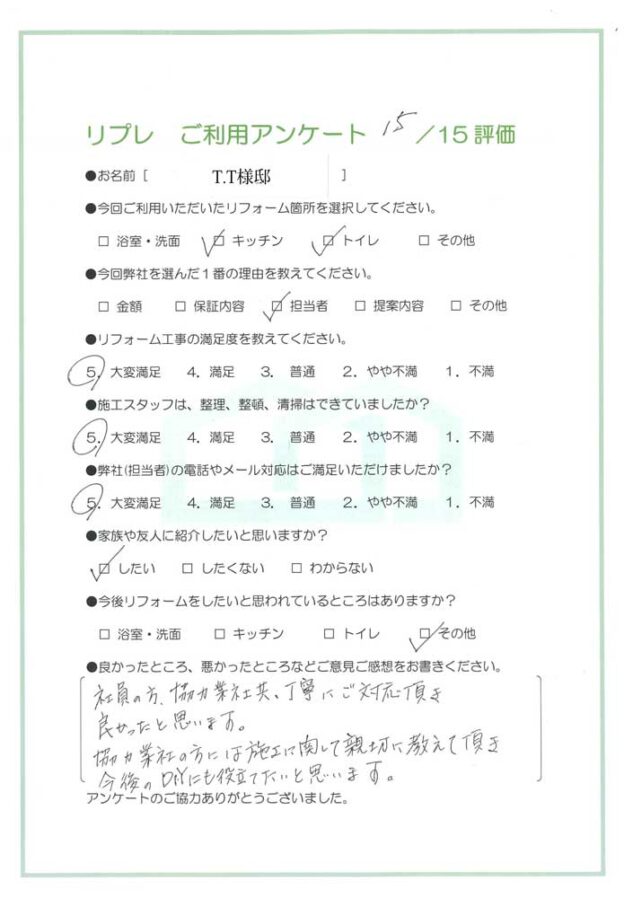 リプレ ご利用アンケート 15 /15評価
●お名前 [ T.T様邸 ]
●今回ご利用いただいたリフォーム箇所を選択してください。
□ 浴室・洗面 ☑ キッチン ☑ トイレ □ その他
●今回弊社を選んだ1番の理由を教えてください。
□ 金額 □ 保証内容 ☑ 担当者 □ 提案内容 □ その他
●リフォーム工事の満足度を教えてください。
5. 大変満足 4. 満足 3. 普通 2. やや不満 1. 不満
●施工スタッフは、整理、整頓、清掃はできていましたか?
5. 大変満足 4. 満足 3. 普通 2. やや不満 1. 不満
●弊社(担当者)の電話やメール対応はご満足いただけましたか?
5. 大変満足 4. 満足 3. 普通 2. やや不満 1. 不満
●家族や友人に紹介したいと思いますか?
☑ したい □ したくない □ わからない
●今後リフォームをしたいと思われているところはありますか?
□ 浴室・洗面 □ キッチン □ トイレ ☑ その他
●良かったところ、悪かったところなどご意見ご感想をお書きください。
社員の方、協力業社共、丁寧にご対応頂き
良かったと思います。
協力業社の方には施工に関して親切に教えて頂き
今後のDIYにも役立てたいと思います。
アンケートのご協力ありがとうございました。